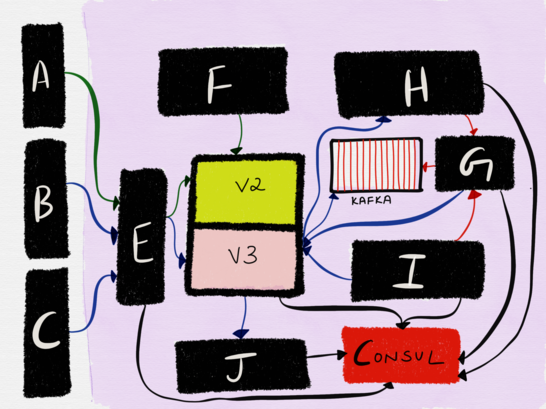 A
B
C
E
F
V2
V3
J
H
KAFKA
G
I
CONSUL